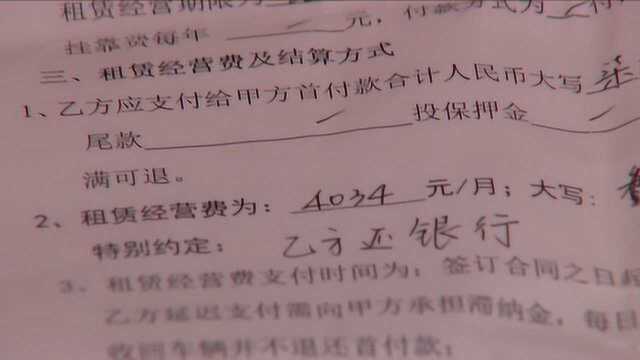 租赁经营期限为
挂靠费每年 元，付款方式为 付
三、租赁经营费及结算方式
1、乙方应支付给甲方首付款合计人民币大写
尾款 投保押金
满可退。
2、租赁经营费为：4034 元/月；大写：
特别约定： 乙方还银行
3、租赁经营费支付时间为：签订合同之日起
乙方延迟支付需向甲方承担滞纳金，每日
收回车辆并不退还首付款；